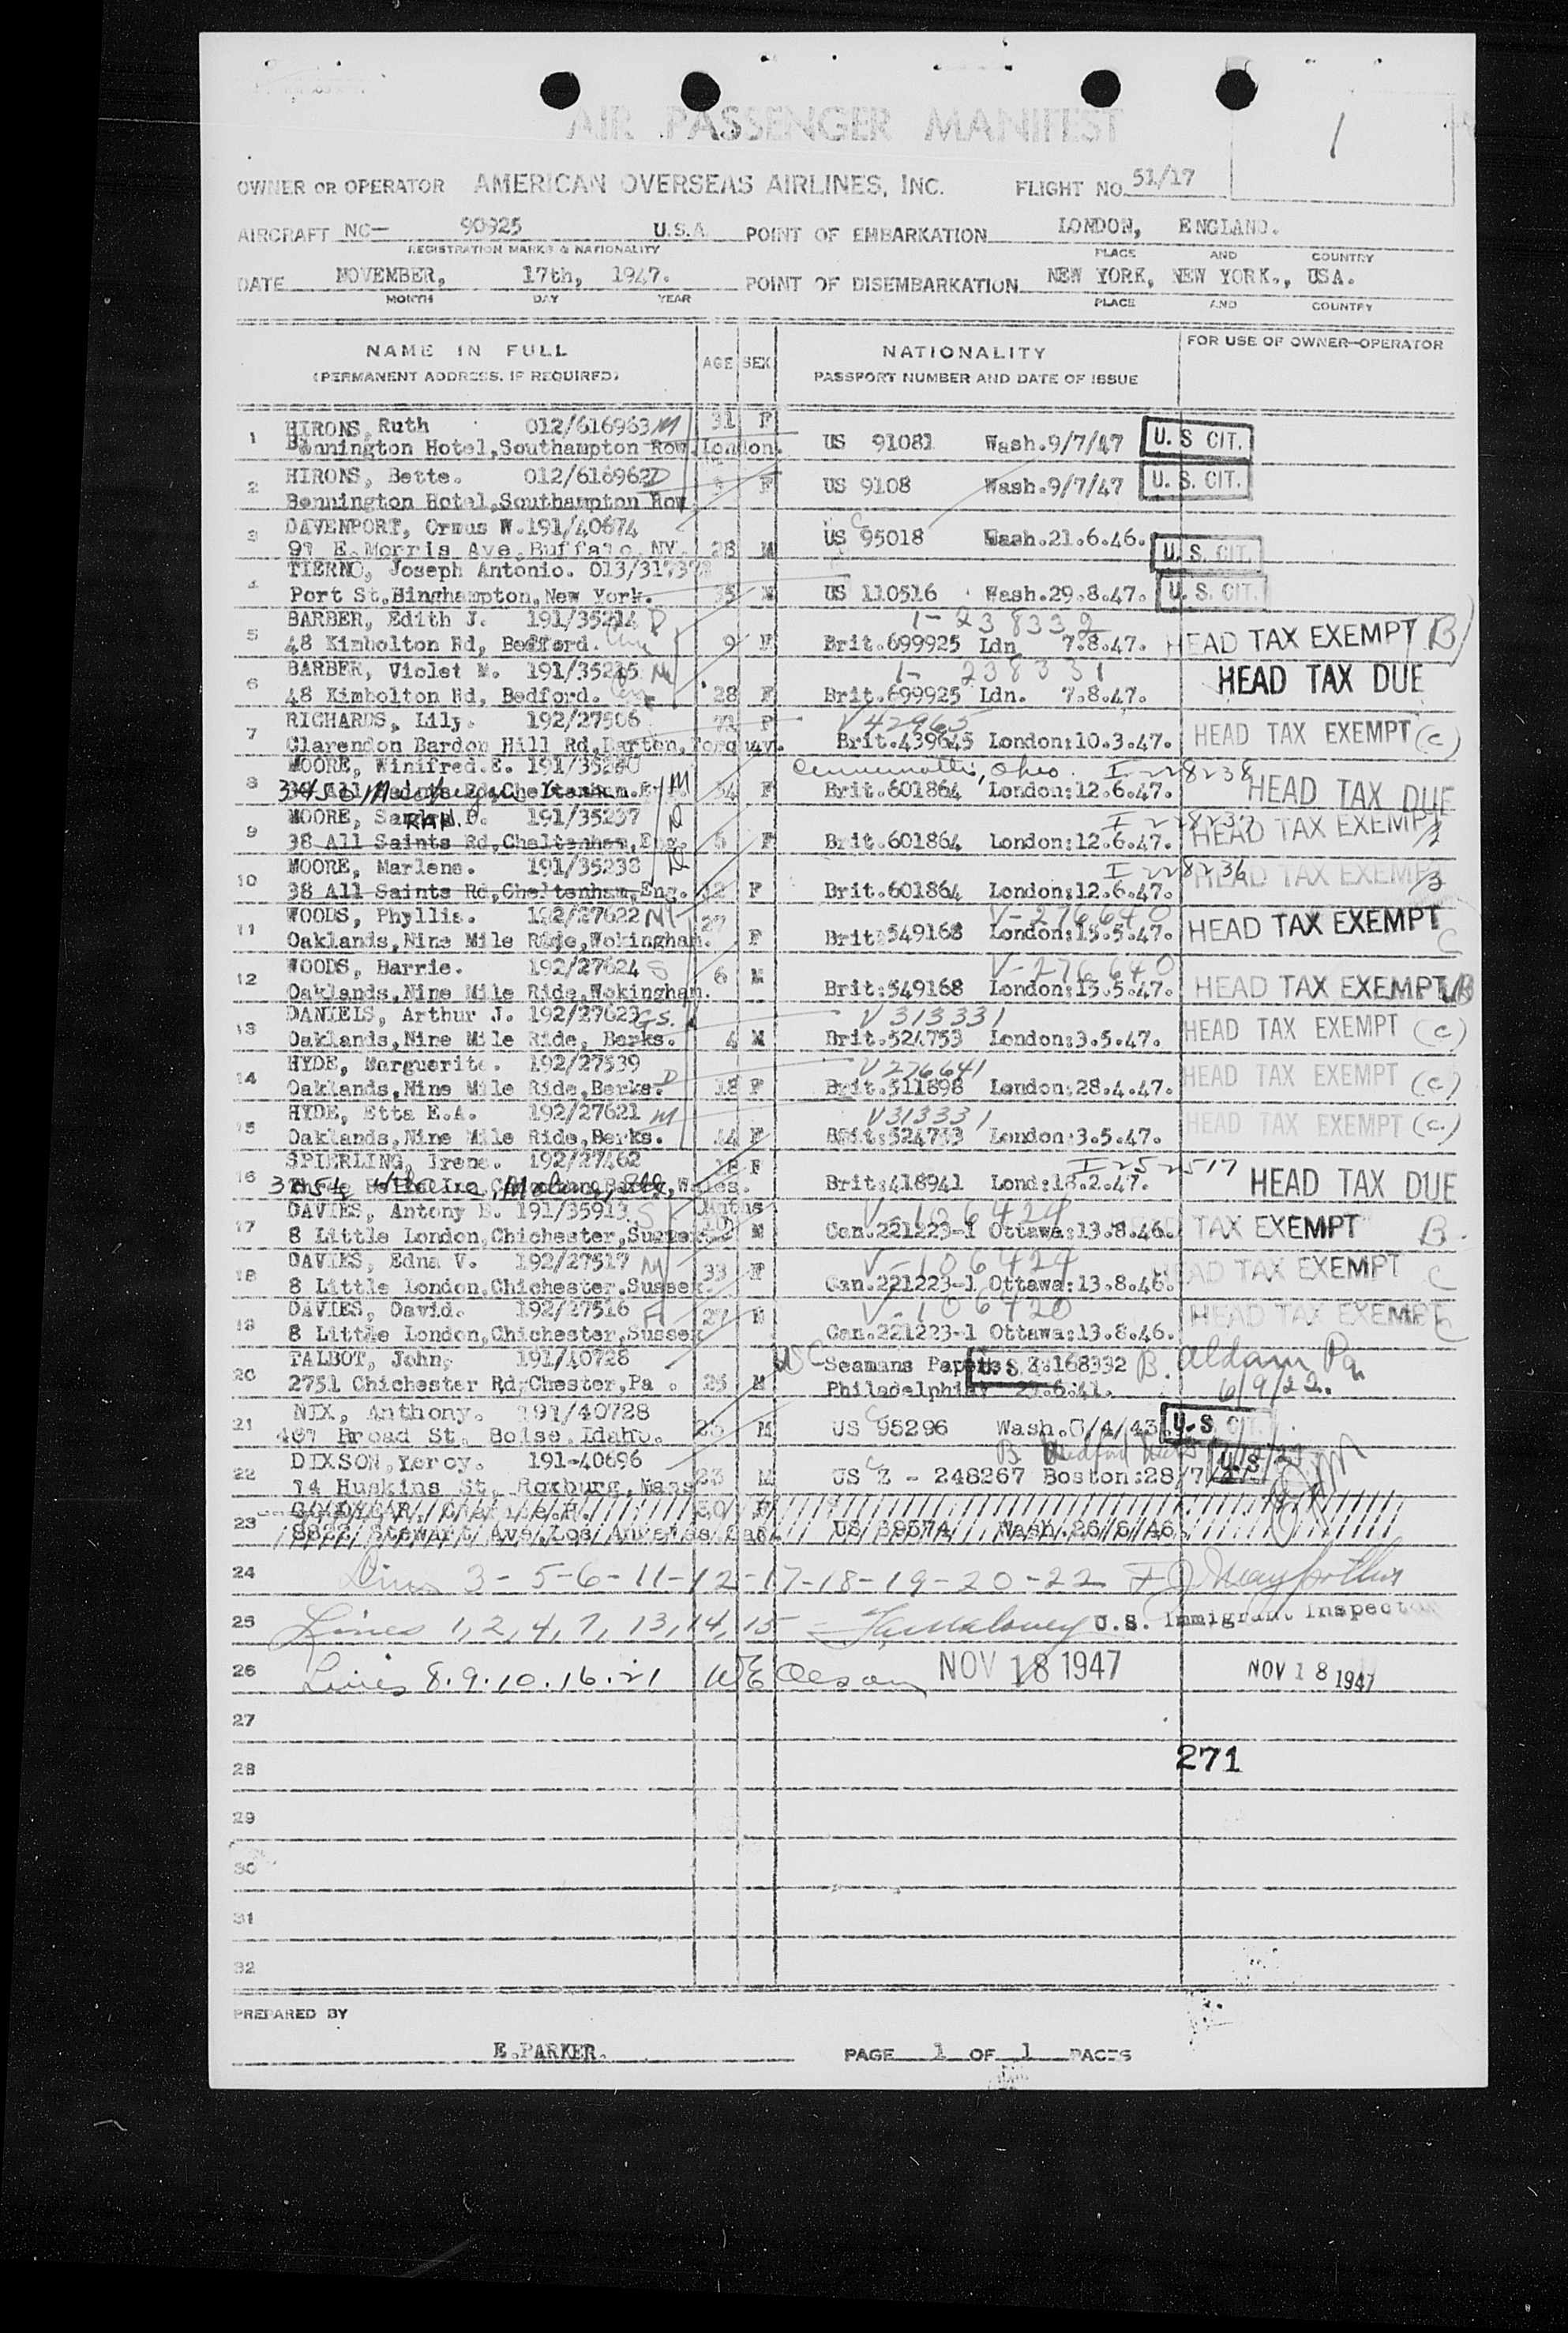 AIR PASSENGER MANIFEST
1
OWNER OR OPERATOR AMERICAN OVERSEAS AIRLINES, INC. FLIGHT NO. 51/17
AIRCRAFT NC- 90925 U.S.A. POINT OF EMBARKATION LONDON, ENGLAND.
REGISTRATION MARKS & NATIONALITY PLACE AND COUNTRY
DATE NOVEMBER, 17th, 1947. POINT OF DISEMBARKATION NEW YORK, NEW YORK., USA.
MONTH DAY YEAR PLACE AND COUNTRY
NAME IN FULL AGE SEX NATIONALITY FOR USE OF OWNER-OPERATOR
(PERMANENT ADDRESS, IF REQUIRED) PASSPORT NUMBER AND DATE OF ISSUE
1 HIRONS, Ruth 012/616963 M 31 F
Bennington Hotel,Southampton Row,London. US 91081 Wash.9/7/47 U.S CIT.
2 HIRONS, Bette. 012/616962 D F US 9108 Wash.9/7/47 U.S. CIT.
Bennington Hotel,Southampton Row
3 DAVENPORT, Ormus W.191/40674 US 95018 Wash.21.6.46.
97 E.Morris Ave,Buffalo,NY. 28 M U.S. CIT.
4 TIERNO, Joseph Antonio. 013/31737
Port St.Binghampton,New York. 35 M US 110516 Wash.29.8.47. U.S. CIT.
5 BARBER, Edith J. 191/35214 D 1-238332
48 Kimbolton Rd, Bedford. 9 F Brit.699925 Ldn 7.8.47. HEAD TAX EXEMPT B
6 BARBER, Violet M. 191/35215 M 1-238331
48 Kimbolton Rd, Bedford. 28 F Brit.699925 Ldn. 7.8.47. HEAD TAX DUE
7 RICHARDS, Lily. 192/27506 F V42965
Clarendon Bardon Hill Rd,Barton,Torquay. Brit.439645 London:10.3.47. HEAD TAX EXEMPT (C)
8 MOORE, Winifred.E. 191/35240 Cincinnatti, Ohio. I 228238
Cheltenham. M 34 F Brit.601864 London:12.6.47. HEAD TAX DUE
9 MOORE, P. 191/35237 D I 228237
38 All Saints Rd,Cheltenham,Eng. 5 F Brit.601864 London:12.6.47. HEAD TAX EXEMPT
10 MOORE, Marlene. 191/35238 D I 228236
38 All Saints Rd,Cheltenham,Eng. 12 F Brit.601864 London:12.6.47. HEAD TAX EXEMPT
11 WOODS, Phyllis. 192/27622 M 27 V-276640
Oaklands,Nine Mile Ride,Wokingham. F Brit:549168 London:15.5.47. HEAD TAX EXEMPT C
12 WOODS, Barrie. 192/27624 S 6 M V-276640
Oaklands,Nine Mile Ride,Wokingham. Brit:549168 London:15.5.47. HEAD TAX EXEMPT B
13 DANIELS, Arthur J. 192/27623 GS. V313331
Oaklands,Nine Mile Ride, Berks. 4 M Brit.524753 London:3.5.47. HEAD TAX EXEMPT (C)
14 HYDE, Marguerite. 192/27539 V276641
Oaklands,Nine Mile Ride,Berks. D 18 F Brit.511898 London:28.4.47. HEAD TAX EXEMPT (C)
15 HYDE, Etta E.A. 192/27621 M V313331
Oaklands,Nine Mile Ride,Berks. 44 F Brit:524753 London:3.5.47. HEAD TAX EXEMPT (C)
16 SPIERLING, Irene. 192/27462 F I 252517
Moline, Ill, Wales. Brit:418941 Lond:18.2.47. HEAD TAX DUE
17 DAVIES, Antony B. 191/35913 S V-106424
8 Little London,Chichester,Sussex M Can.221223-1 Ottawa:13.8.46. TAX EXEMPT B.
18 DAVIES, Edna V. 192/27517 M 33 F V-106424
8 Little London,Chichester,Sussex. Can.221223-1 Ottawa:13.8.46. HEAD TAX EXEMPT C
19 DAVIES, David. 192/27516 27 M V-106420
8 Little London,Chichester,Sussex Can.221223-1 Ottawa:13.8.46. HEAD TAX EXEMPT C
20 TALBOT, John, 191/40728 USC Seamans Papers Z:168332 B. Aldam Pa
2751 Chichester Rd,Chester,Pa. 25 M Philadelphia: 6/9/22.
21 NIX, Anthony. 191/40728 US 95296 Wash. /4/43 U.S CIT.
407 Broad St. Boise.Idaho. 25 M
22 DIXSON,Leroy. 191-40696 23 M US Z - 248267 Boston:28/7 U.S
14 Huskins St. Roxburg,Mass B Medford Mass
23 30 F
8822 Stewart Ave,Los Angeles Cal. US 39574 Wash.26/6/46
24 Lines 3-5-6-11-12-17-18-19-20-22
25 Lines 1, 2, 4, 7, 13, 14, 15 - U.S. Immigrant Inspector
26 Lines 8.9.10.16.21 WE Olson NOV 18 1947 NOV 18 1947
27
28 271
29
30
31
32
PREPARED BY
E.PARKER. PAGE 1 OF 1 PAGES